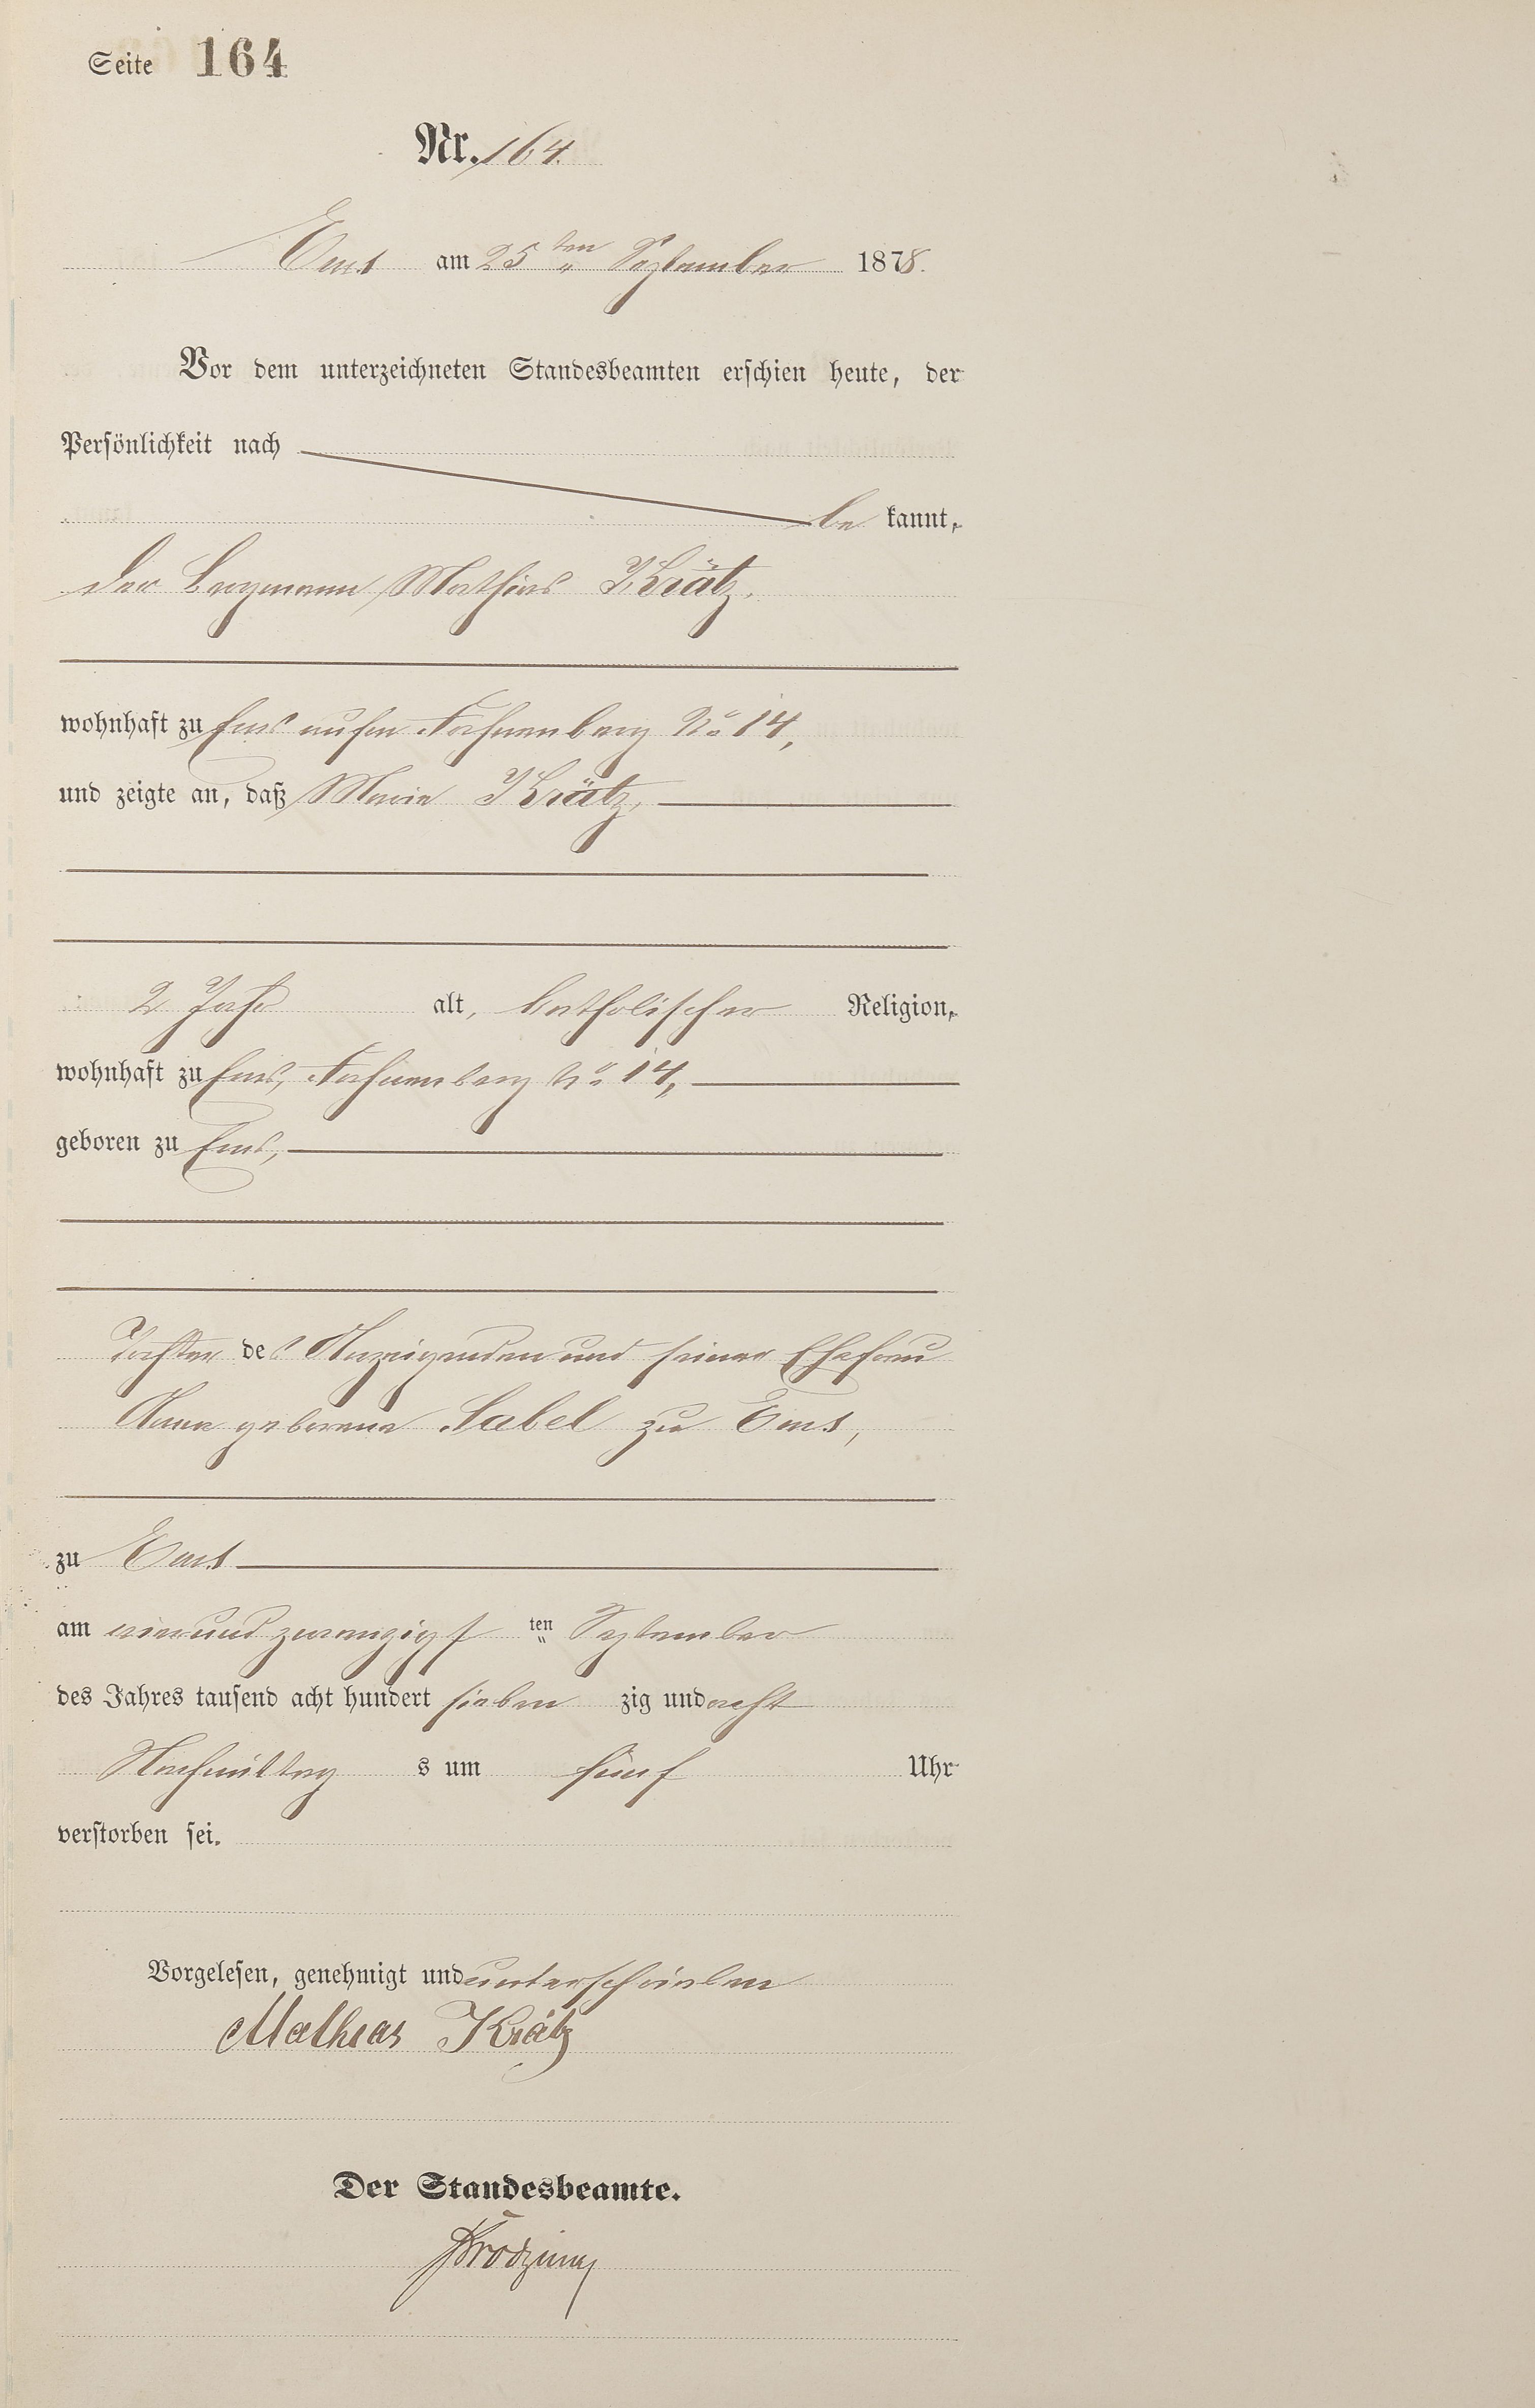 Seite 164
Nr. 164.
Ems am 25ten September 1878.
Vor dem unterzeichneten Standesbeamten erschien heute, der
Persönlichkeit nach
be kannt,
der Bergmann Mathias Krätz,
wohnhaft zu Ems auf'm Fahnenberg No 14,
und zeigte an, daß Maria Krätz,
2 Jahr alt, katholischer Religion,
wohnhaft zu Ems, Fahnenberg No 14,
geboren zu Ems,
Tochter des Anzeigenden und seiner Ehefrau
Anna geborene Sabel zu Ems,
zu Ems
am einundzwanzigsten September
des Jahres tausend acht hundert sieben zig und acht
Nachmittag s um fünf Uhr
verstorben sei.
Vorgelesen, genehmigt und unterschrieben
Mathias Krätz
Der Standesbeamte.